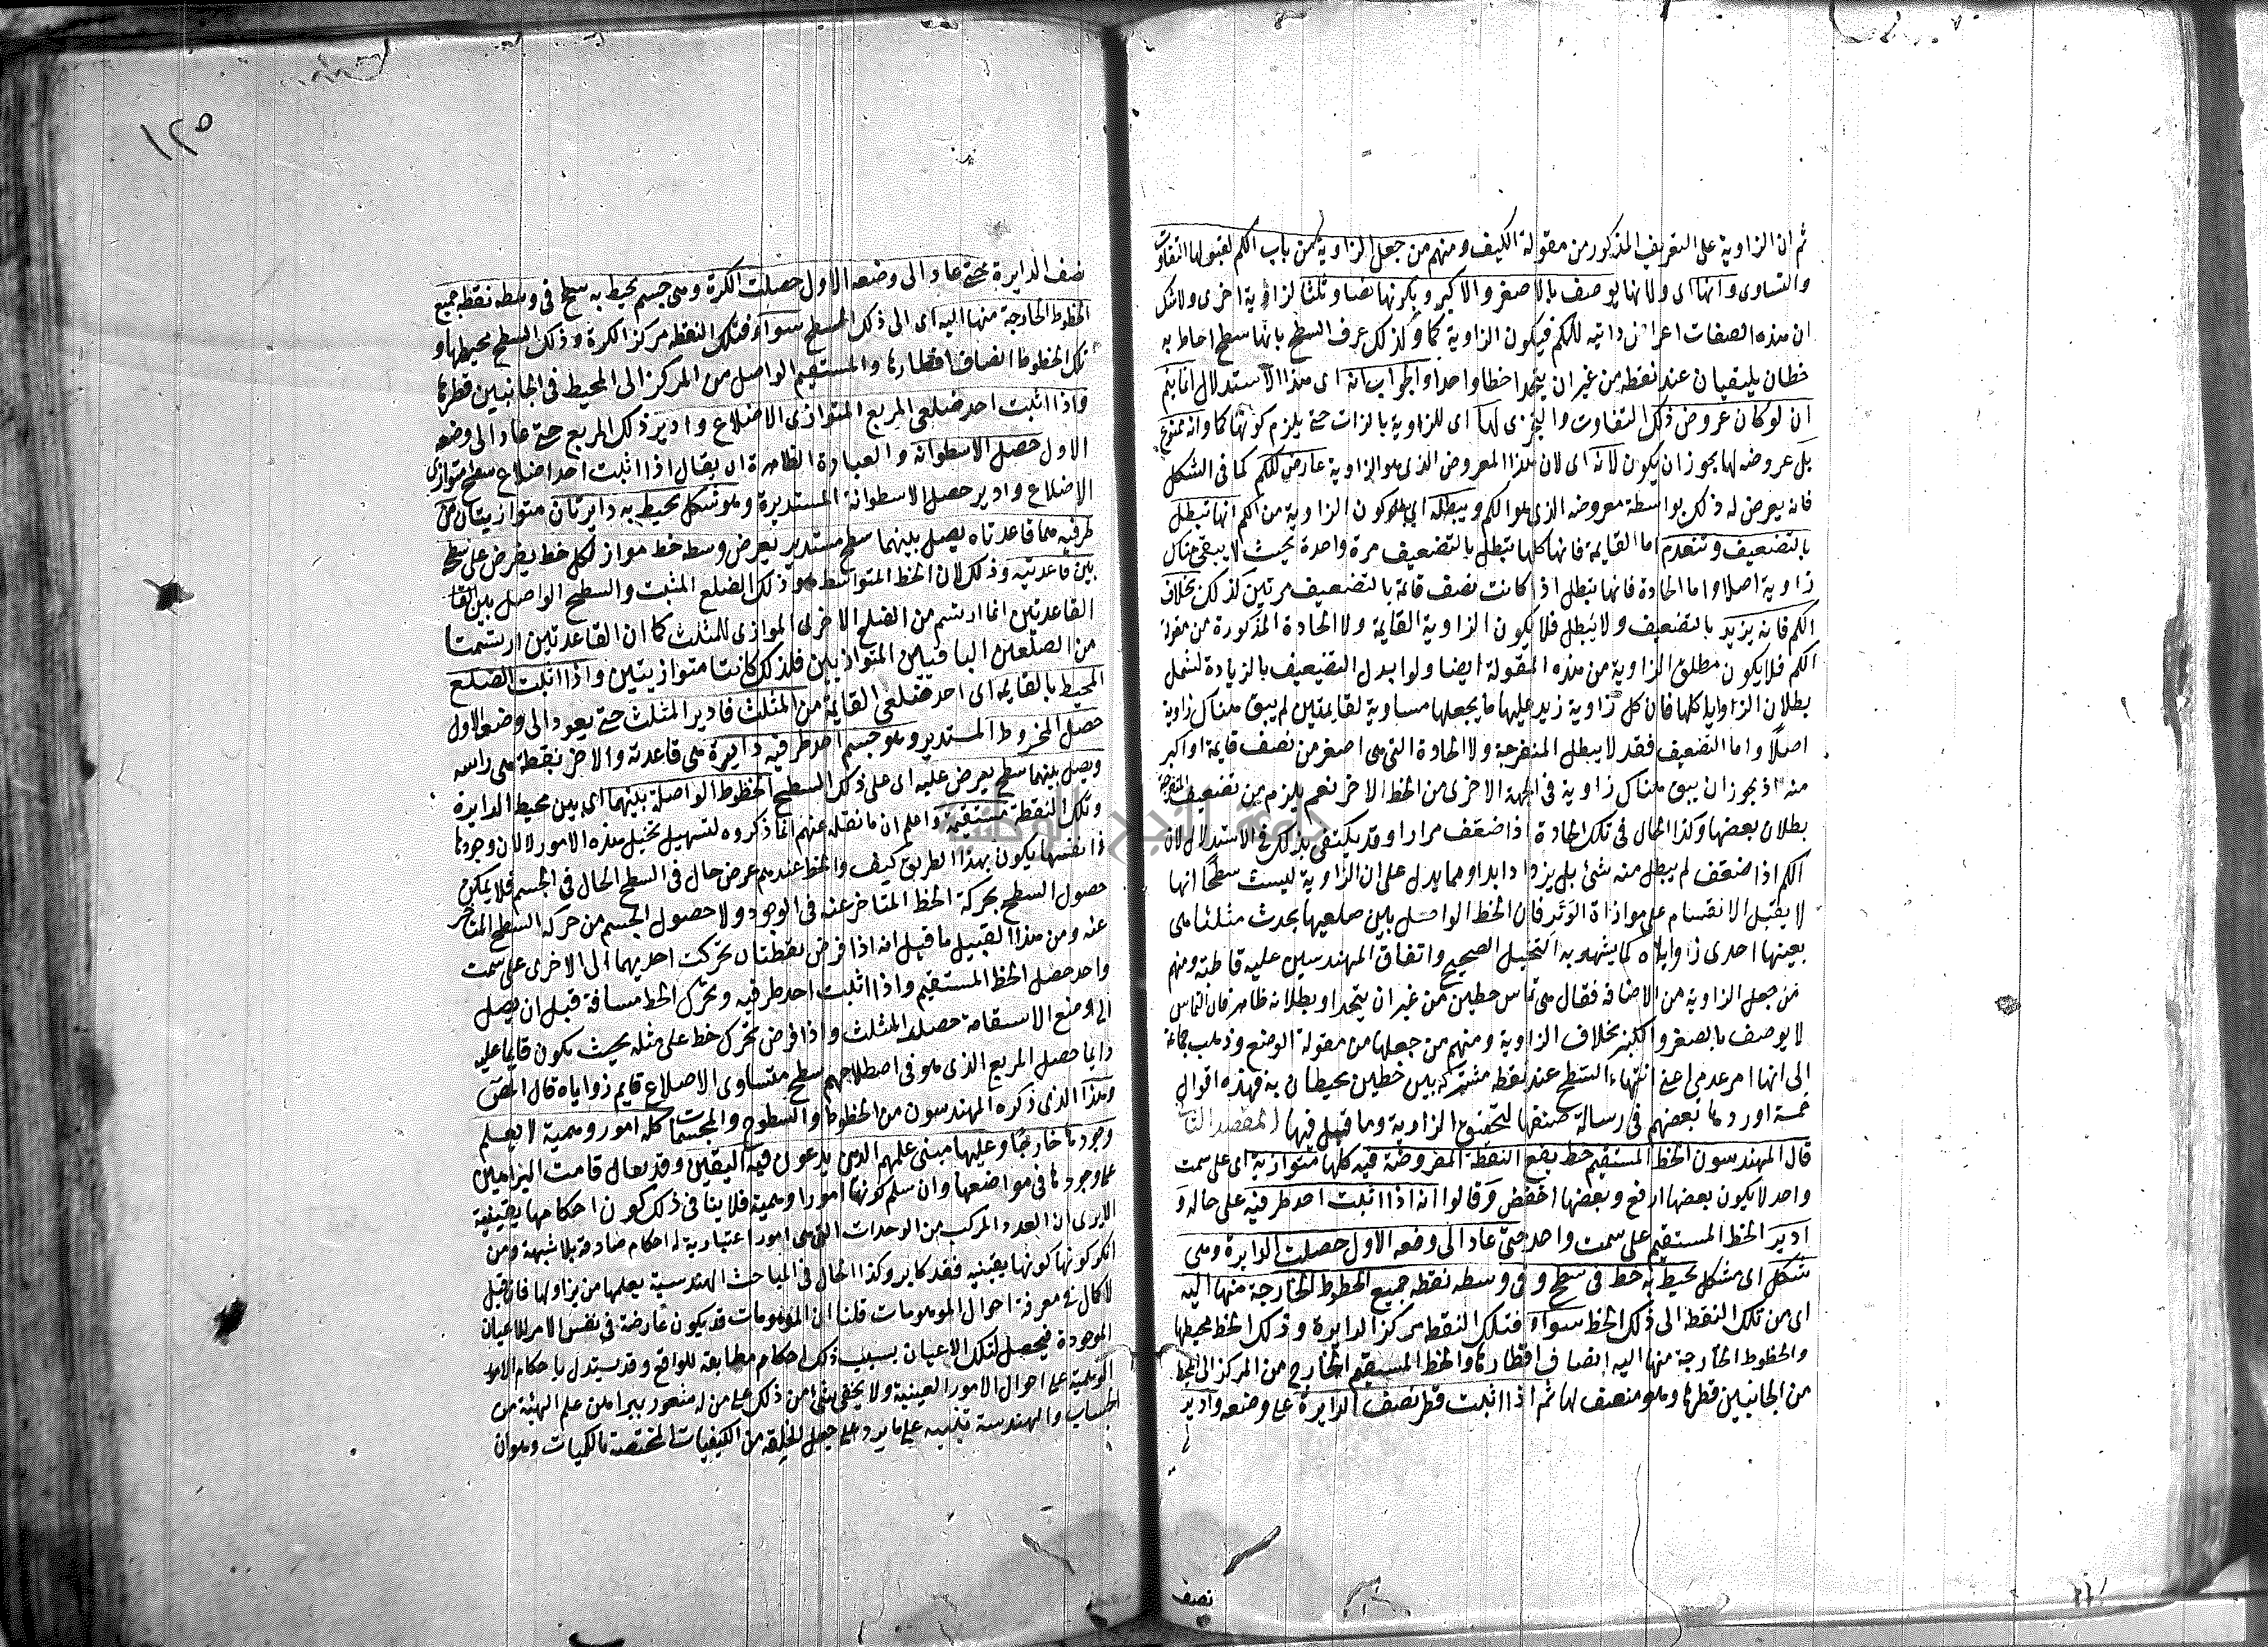 ثم ان الزاوية على التعريف المذكور من مقولة الكيف ومنهم من جعل الزاوية من باب الكم لقبولها التفاوت
والتساوى وانها اى ولانها يوصف بالاصغر والاكبر وبكونها نصفا وثلثا لزاوية اخرى ولا شك
ان هذه الصفات اعراض ذاتيه للكم فيكون الزاوية كما وكذلك عرف السطح بانها سطح احاط به
خطان يلتقيان عند نقطه من غير ان يتحدا خطا واحدا والجواب انه اى هذا الاستدلال انما يتم
ان لو كان عروض ذلك التفاوت والتجزى لها اى للزاوية بالذات حتى يلزم كونها كما وانه ممنوع
بل عروضه لها يجوز ان يكون لانه اى لان هذا المعروض الذى هو الزاوية عارض للكم كما فى الشكل
فانه يعرض له ذلك بواسطة معروضه الذى هو الكم ويبطله اى كون الزاوية من الكم انها تبطل
بالتضعيف وتنعدم اما القايمة فانها كلها تبطل بالتضعيف مرة واحدة بحيث لا يبقى هناك
زاوية اصلا واما الحادة فانها تبطل اذا كانت نصف قائمة بالتضعيف مرتين كذلك بخلاف
الكم فانه يزيد بالتضعيف ولا يبطل فلا يكون الزاوية القايمة ولا الحادة المذكورة من مقولة
الكم فلا يكون مطلق الزاوية من هذه المقولة ايضا ولو ابدل التضعيف بالزيادة لشمل
بطلان الزوايا كلها فان كل زاوية زيد عليها ما يجعلها مساوية لقايمتين لم يبق هناك زاوية
اصلا واما التضعيف فقد لا يبطل المنفرجة ولا الحادة التى هى اصغر من نصف قايمة او اكبر
منه اذ يجوز ان يبق هناك زاوية فى الجهة الاخرى من الخط الاخر نعم يلزم من تضعيف المنفرجة
بطلان بعضها وكذا الحال فى تلك الحادة اذا ضعف مرارا وقد يكتفى بذلك فى الاستدلال لان
الكم اذا ضعف لم يبطل منه شئ بل يزداد ابدا ومما يدل على ان الزاوية ليست سطحا انها
لا يقبل الانقسام على موازاة الوتر فان الخط الواصل بين ضلعيها يحدث مثلثا هى
بعينها احدى زواياه كما يشهد به التخيل الصحيح واتفاق المهندسين عليه قاطبة ومنهم
من جعل الزاوية من الاضافة فقال هى تماس خطين من غير ان يتحدا وبطلانه ظاهر فان التماس
لا يوصف بالصغر والكبر بخلاف الزاوية ومنهم من جعلها من مقولة الوضع وذهب جماعة
الى انها امر عدمى اعنى انتهاء السطح عند نقطه مشتركة بين خطين يحيطان به فهذه اقوال
خمسة اوردها بعضهم فى رسالة صنفها لتحقيق الزاوية وما قيل فيها المقصد الثالث
قال المهندسون الخط المستقيم خط يقع النقطة المفروضة فيه كلها متوازية اى على سمت
واحد لا يكون بعضها ارفع وبعضها اخفض وقالوا انه اذا اثبت احد طرفيه على حاله و
ادير الخط المستقيم على سمت واحد حتى عاد الى وضعه الاول حصلت الدايرة وهى
شكل اى مشكل يحيط به خط فى سطح وفى وسطه نقطه جميع الخطوط الخارجة منها اليه
اى من تلك النقطه الى ذلك الخط سواء فتلك النقطه مركز الدايرة وذلك الخط محيطها
والخطوط الخارجة منها اليه انصاف اقطارها والخط المستقيم الخارج من المركز الى المحيط
من الجانبين قطرها وهو منصف لها ثم اذا اثبت قطر نصف الدايرة على وضعه وادير
نصف
١٢٥
نصف الدايرة حتى عاد الى وضعه الاول حصلت الكرة وهى جسم يحيط به سطح فى وسطه نقطه جميع
الخطوط الخارجة منها اليه اى الى ذلك السطح سواء فتلك النقطه مركز الكرة وذلك السطح محيطها و
تلك الخطوط انصاف اقطارها والمستقيم الواصل من المركز الى المحيط فى الجانبين قطرها
واذا اثبت احد ضلعى المربع المتوازى الاضلاع وادير ذلك المربع حتى عاد الى وضعه
الاول حصل الاسطوانه والعبارة الظاهرة ان يقال اذا اثبت احد اضلاع سطح متوازى
الاضلاع وادير حصل الاسطوانة المستديرة وهو شكل يحيط به دايرتان متوازيتان من
طرفيه هما قاعدتاه يصل بينهما سطح مستدير يعرض وسطه خط مواز لكل خط يفرض على سطحه
بين قاعدتيه وذلك لان الخط المتواسط هو ذلك الضلع المثبت والسطح الواصل بين
القاعدتين انما ارتسم من الضلع الاخرى الموازى للمثلث كما ان القاعدتين ارتسمتا
من الضلعين الباقيين المتوازيين فلذلك كانتا متوازيتين واذا اثبت الضلع
المحيط بالقايمه اى احد ضلعى القايمة من المثلث فادير المثلث حتى يعود الى وضعه الاول
حصل المخروط المستدير وهو جسم احد طرفيه دايرة هى قاعدته والاخر نقطة هى راسه
ويصل بينهما سطح يعرض عليه اى على ذلك السطح الخطوط الواصلة بينهما اى بين محيط الدايرة
وتلك النقطة مستقيمة واعلم ان ما نقله عنهم انما ذكروه لتسهيل تخيل هذه الامور لا لان وجودها
فى نفسها يكون بهذا الطريق كيف والخط عندهم عرض حال فى السطح الحال فى الجسم فلا يمكن
حصول السطح بحركة الخط المتاخر عنه فى الوجود ولا حصول الجسم من حركة السطح المتاخر
عنه ومن هذا القبيل ما قيل انه اذا فرض نقطتان تحركت احديهما الى الاخرى على سمت
واحد حصل الخط المستقيم واذا اثبت احد طرفيه وتحرك الخط مسافة قبل ان يصل
الى وضع الاستقامة حصل المثلث واذا فرض تحرك خط على مثله بحيث يكون قايما عليه
دايما حصل المربع الذى هو فى اصطلاحهم سطح متساوى الاضلاع قايم زواياه قال المص
وهذا الذى ذكره المهندسون من الخطوط والسطوح والمجسمات كله امور وهمية لا يعلم
وجودها خارجا وعليها مبنى علمهم الذى يدعون فيه اليقين وقد يقال قامت البراهين
على وجودها فى مواضعها وان سلم كونها امورا وهمية فلا ينافى ذلك كون احكامها يقينية
الا يرى ان العدد المركب من الوحدات التى هى امور اعتبارية له احكام صادقة بلا شبهة ومن
انكر كونها يقينيه فقد كابر وكذا الحال فى المباحث الهندسية يعلمها من يزاولها فان قيل
لا كمال فى معرفة احوال الموهومات قلنا ان الموهومات قد يكون عارضة فى نفس الامر للاعيان
الموجودة فيحصل لتلك الاعيان بسبب ذلك احكام مطابقه للواقع وقد يستدل باحكام الامور
الوهمية على احوال الامور العينية ولا يخفى شئ من ذلك على من له شعور ببراهين علم الهيئة من
الحساب والهندسة تنبيه على ما يرد على جعل الخلقة من الكيفيات المختصة بالكميات وهو ان